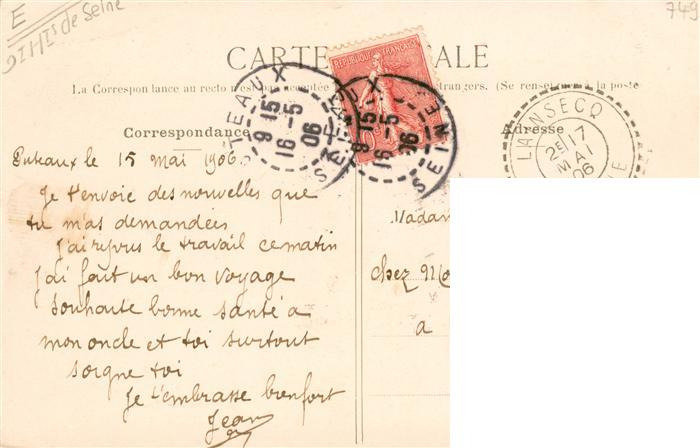 E
Hts de Seine
749
CARTE POSTALE
RÉPUBLIQUE FRANÇAISE
La Correspondance au recto n'est pas acceptée étrangers. (Se renseigner à la poste
PUTEAUX
9 15
16 - 5
06
SEINE
PUTEAUX
9 15
16 - 5
06
SEINE
LAINSECQ
2E 17
MAI
06
Correspondance
Adresse
Puteaux le 15 mai 1906.
Je t'envoie des nouvelles que
tu m'as demandées
J'ai repris le travail ce matin
J'ai fait un bon voyage
Souhaite bonne santé à
mon oncle et toi surtout
soigne toi
Je t'embrasse bien fort
Jean
Madam
chez Mo
a